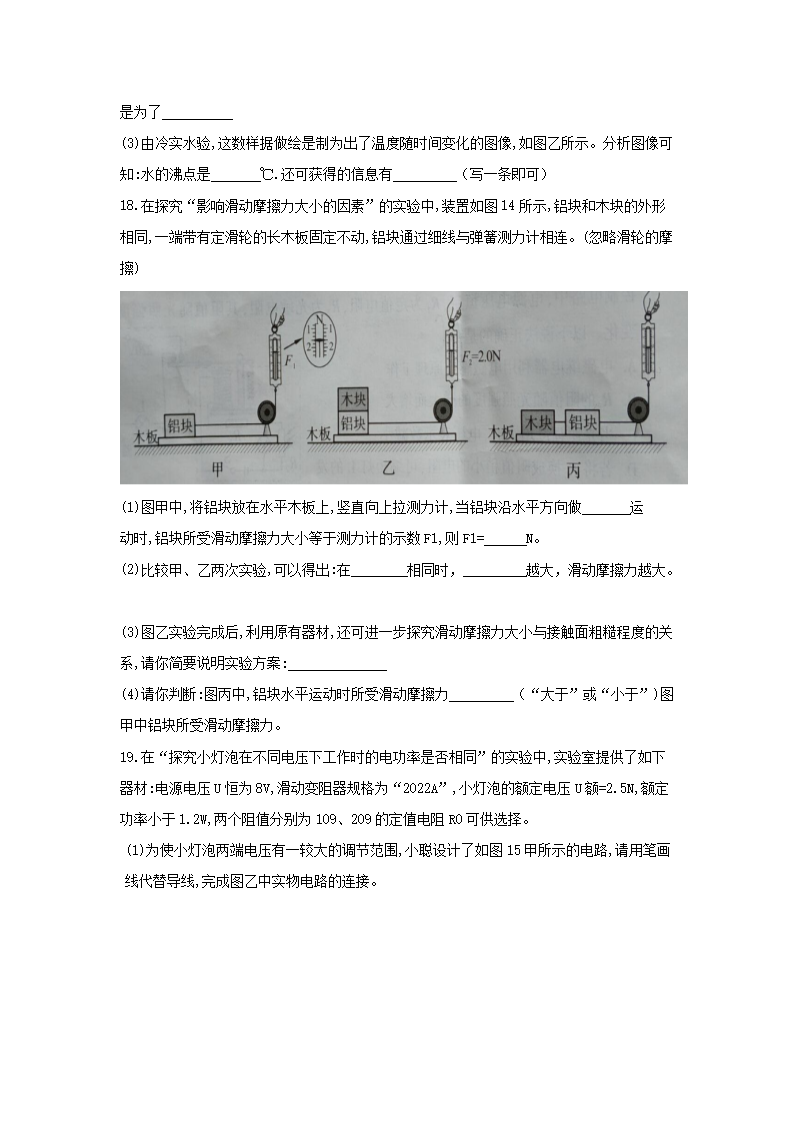 是为了__________
(3)由冷实水验,这数样据做绘是制为出了温度随时间变化的图像,如图乙所示。分析图像可
知:水的沸点是_______℃.还可获得的信息有_________(写一条即可)
18.在探究“影响滑动摩擦力大小的因素”的实验中,装置如图14所示,铝块和木块的外形
相同,一端带有定滑轮的长木板固定不动,铝块通过细线与弹簧测力计相连。(忽略滑轮的摩
擦)
N
1 1
2 2
F₁
铝块
木板
甲
F₂=2.0N
木块
铝块
木板
乙
木块 铝块
木板
丙
(1)图甲中,将铝块放在水平木板上,竖直向上拉测力计,当铝块沿水平方向做_______运
动时,铝块所受滑动摩擦力大小等于测力计的示数F1,则F1=______N。
(2)比较甲、乙两次实验,可以得出:在________相同时，_________越大，滑动摩擦力越大。
(3)图乙实验完成后,利用原有器材,还可进一步探究滑动摩擦力大小与接触面粗糙程度的关
系,请你简要说明实验方案:______________
(4)请你判断:图丙中,铝块水平运动时所受滑动摩擦力_________(“大于”或“小于”)图
甲中铝块所受滑动摩擦力。
19.在“探究小灯泡在不同电压下工作时的电功率是否相同”的实验中,实验室提供了如下
器材:电源电压U恒为8V,滑动变阻器规格为“2022A”,小灯泡的额定电压U额=2.5N,额定
功率小于1.2W,两个阻值分别为109、209的定值电阻R0可供选择。
(1)为使小灯泡两端电压有一较大的调节范围,小聪设计了如图15甲所示的电路,请用笔画
线代替导线,完成图乙中实物电路的连接。